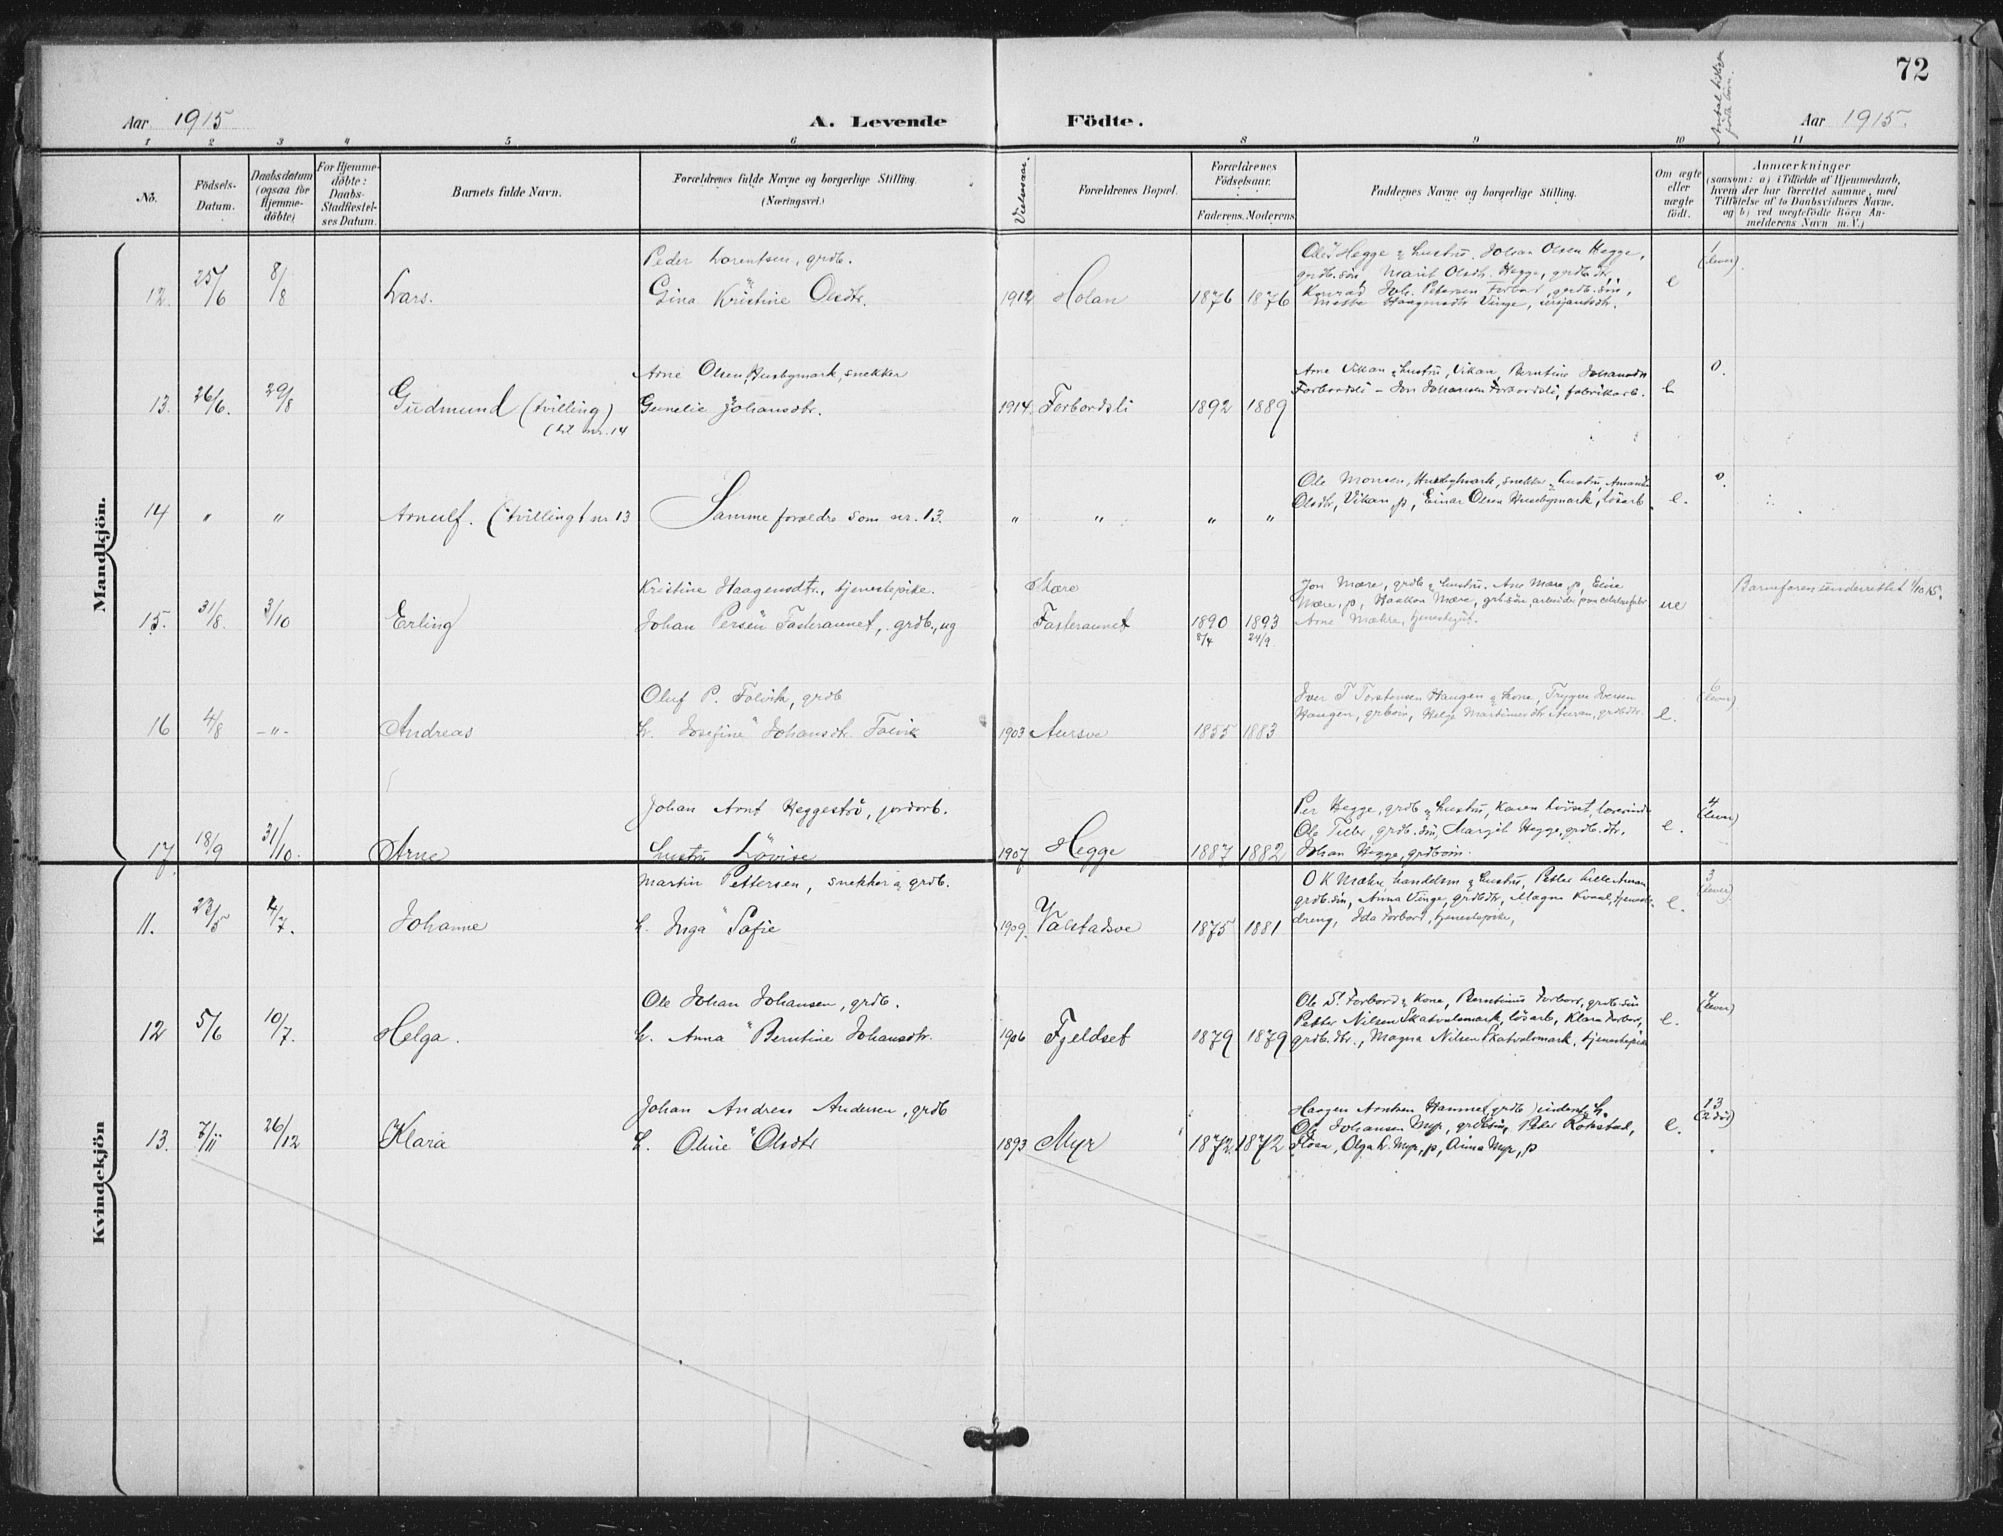 72
Aar 1915
A. Levende
Födte.
Aar 1915.
1 2 3 4 5 6 8 9 10 11
No.
Födsels-
Datum.
Daabsdatum
(ogsaa for
Hjemme-
döbte)
For Hjemme-
döbte:
Daabs-
Stadfæstel-
ses Datum.
Barnets fulde Navn.
Forældrenes fulde Navne og borgerlige Stilling.
(Næringsvei.)
Vielsesaar.
Forældrenes Bopæl.
Forældrenes
Födselsaar.
Faderens. Moderens
Faddernes Navne og borgerlige Stilling.
Om ægte
eller
uægte
födt.
Anmærkninger
(saasom: a) i Tilfælde af Hjemmedaab,
hvem der har forrettet samme, med
Tilföielse af to Daabsvidners Navne.
og b) ved uægtefödte Börn An-
melderens Navn m.V.)
Mandkjön.
12. 25/6 8/8 Lars.
Peder Lorentsen, grdb.
Gina Kristine Olsdtr.
1912 Holan 1876 1876
Hegge & hustru. Johan Olsen Hegge,
grdb.sön, Marit Olsdtr. Hegge, grdb.dtr.,
Konrad Joh. Petersen Forbord, grdb.sön,
Haagensdtr Vinge,
e
1
(lever).
13. 26/6. 29/8 Gudmund (tvilling)
(til nr. 14
Arne Olsen Husbymark, snekker
Gunelie Johansdtr.
1914 Forbordsli 1892 1889
Arne Vikan & hustru, Vikan, Berntine Johansdtr
Forbordsli – Jon Johansen Forbordsli, fabrikarb.
e
0.
14 " " Arnulf. (tvilling t nr 13
Samme forældre som nr. 13.
" " " "
Ole Monsen, Husbymark, snekker & hustru, Amanda
Olsdtr, Vikan, p, Einar Olsen Husbymark, lösarb.
e.
0.
15. 31/8. 3/10 Erling
Kristine Haagensdtr., tjenestepike.
Johan Persen Fasteraunet, grdb., ug
Mære
Fasteraunet 1890 1893
8/4 24/9
Jon Mære, grdb & hustru. Ane Mære, p, Eline
Mære, p, Haakon Mære, grb.sön, arbeider paa cellulosefabr
Arne Mæhre, tjenestegut.
ue
Barnefaren underrettet 1/10 15.
16 4/8 -"- Andreas
Oluf P. Folvik, grdb
h. Josefine Johansdtr. Folvik
1903 Aursve 1855 1883
Iver T Torstensen Haugen & kone, Trygve Iversen
Haugen, grbsön, Helga Martinusdtr Auran, grdbdtr.
e.
6
(lever)
17. 18/9 31/10. Arne
Johan Arnt Heggeströ, jordarb.
hustru Lovise
1907 Hegge 1887 1882
Per Hegge, grdb & hustru, Karen Livset, lærerinde
Ole Tiller, grdb. sön, Margit Hegge, grdb. dtr.
Johan Hegge, grdbsön.
e.
4
(lever)
Kvindekjön
11. 23/5 4/7. Johanne
Martin Pettersen, snekker & grdb.
h. Inga Sofie
1909. Valstadsve 1875 1881
O K Mæhre, handelsm & hustru, Petter Lilleauran
grdb.sön, Anna Vinge, grdbdtr, Magne Kvaal, tjeneste-
dreng, Ida Forbord, tjenestepike,
e.
3
(lever)
12 5/6 10/7. Helga.
Ole Johan Johansen, grdb.
h. Anna Berntine Johansdtr.
1906 Fjeldset 1879 1879
Ole S. Forbord & kone, Berntinus Forbord, grdb.sön
Petter Nilsen Skatvalsmark, lösarb, Klara Forbord,
grdb. dtr., Magna Nilsen Skatvalsmark, tjenestepike
e.
(lever)
13. 7/11 26/12 Klara
Johan Andreas Andersen, grdb
h. Oline Olsdtr
1893 Myr 1872. 1872
Haagen Arntsen Hammer, grdb
Ole Johansen Myr, grdbsön, Peder Rokstad,
Olga h. Myr, p, Anna Myr, p
e.
13
(2 död)